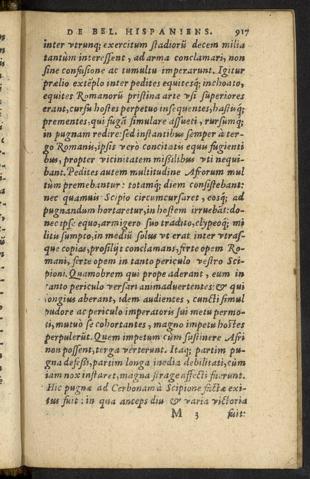 DE BEL. HISPANIENS. 917
inter vtrunq; exercitum stadiorū decem milia
tantùm interessent, ad arma conclamari, non
sine confusione ac tumultu imperarunt. Igitur
prælio extēplo inter pedites equitesq; inchoato,
equites Romanorū pristina arte vsi superiores
erant, cursu hostes perpetuo insequentes, hastiq;
prementes, qui fugā simulare assueti, rursumq;
in pugnam redire: sed instantibus semper à ter-
go Romanis, ipsis verò concitatis equis fugienti
bus, propter vicinitatem missilibus vti nequi-
bant. Pedites autem multitudine Afrorum mul
tùm premebantur: totamq; diem consistebant:
nec quamuis Scipio circumcursaret, eosq; ad
pugnandum hortaretur, in hostem irruebāt: do-
nec ipse equo, armigero suo tradito, clypeoq; mi
litis sumpto, in mediū solus vt erat inter vtras-
que copias, prosilijt conclamans, ferte opem Ro-
mani, ferte opem in tanto periculo vestro Sci-
pioni. Quamobrem qui prope aderant, eum in
tanto periculo versari animaduertentes: & qui
longius aberant, idem audientes, cuncti simul
pudore ac periculo imperatoris sui metu permo-
ti, mutuò se cohortantes, magno impetu hostes
perpulerūt. Quem impetum cùm sustinere Afri
non possent, terga verterunt. Itaq; partim pu-
gna defessi, partim longa inedia debilitati, cùm
iam nox instaret, magna strage affecti fuerunt.
Hic pugnæ ad Cerbonam à Scipione factæ exi-
tus fuit: in qua anceps diu & varia victoria
M 3 fuit: